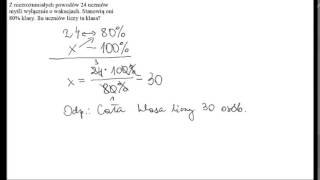 Z niezrozumiałych powodów 24 uczniów
myśli wyłącznie o wakacjach. Stanowią oni
80% klasy. Ilu uczniów liczy ta klasa?
24 ↔ 80%
x – 100%
x = 24 · 100% / 80% = 30
3
1
Odp.: Cała klasa liczy 30 osób.